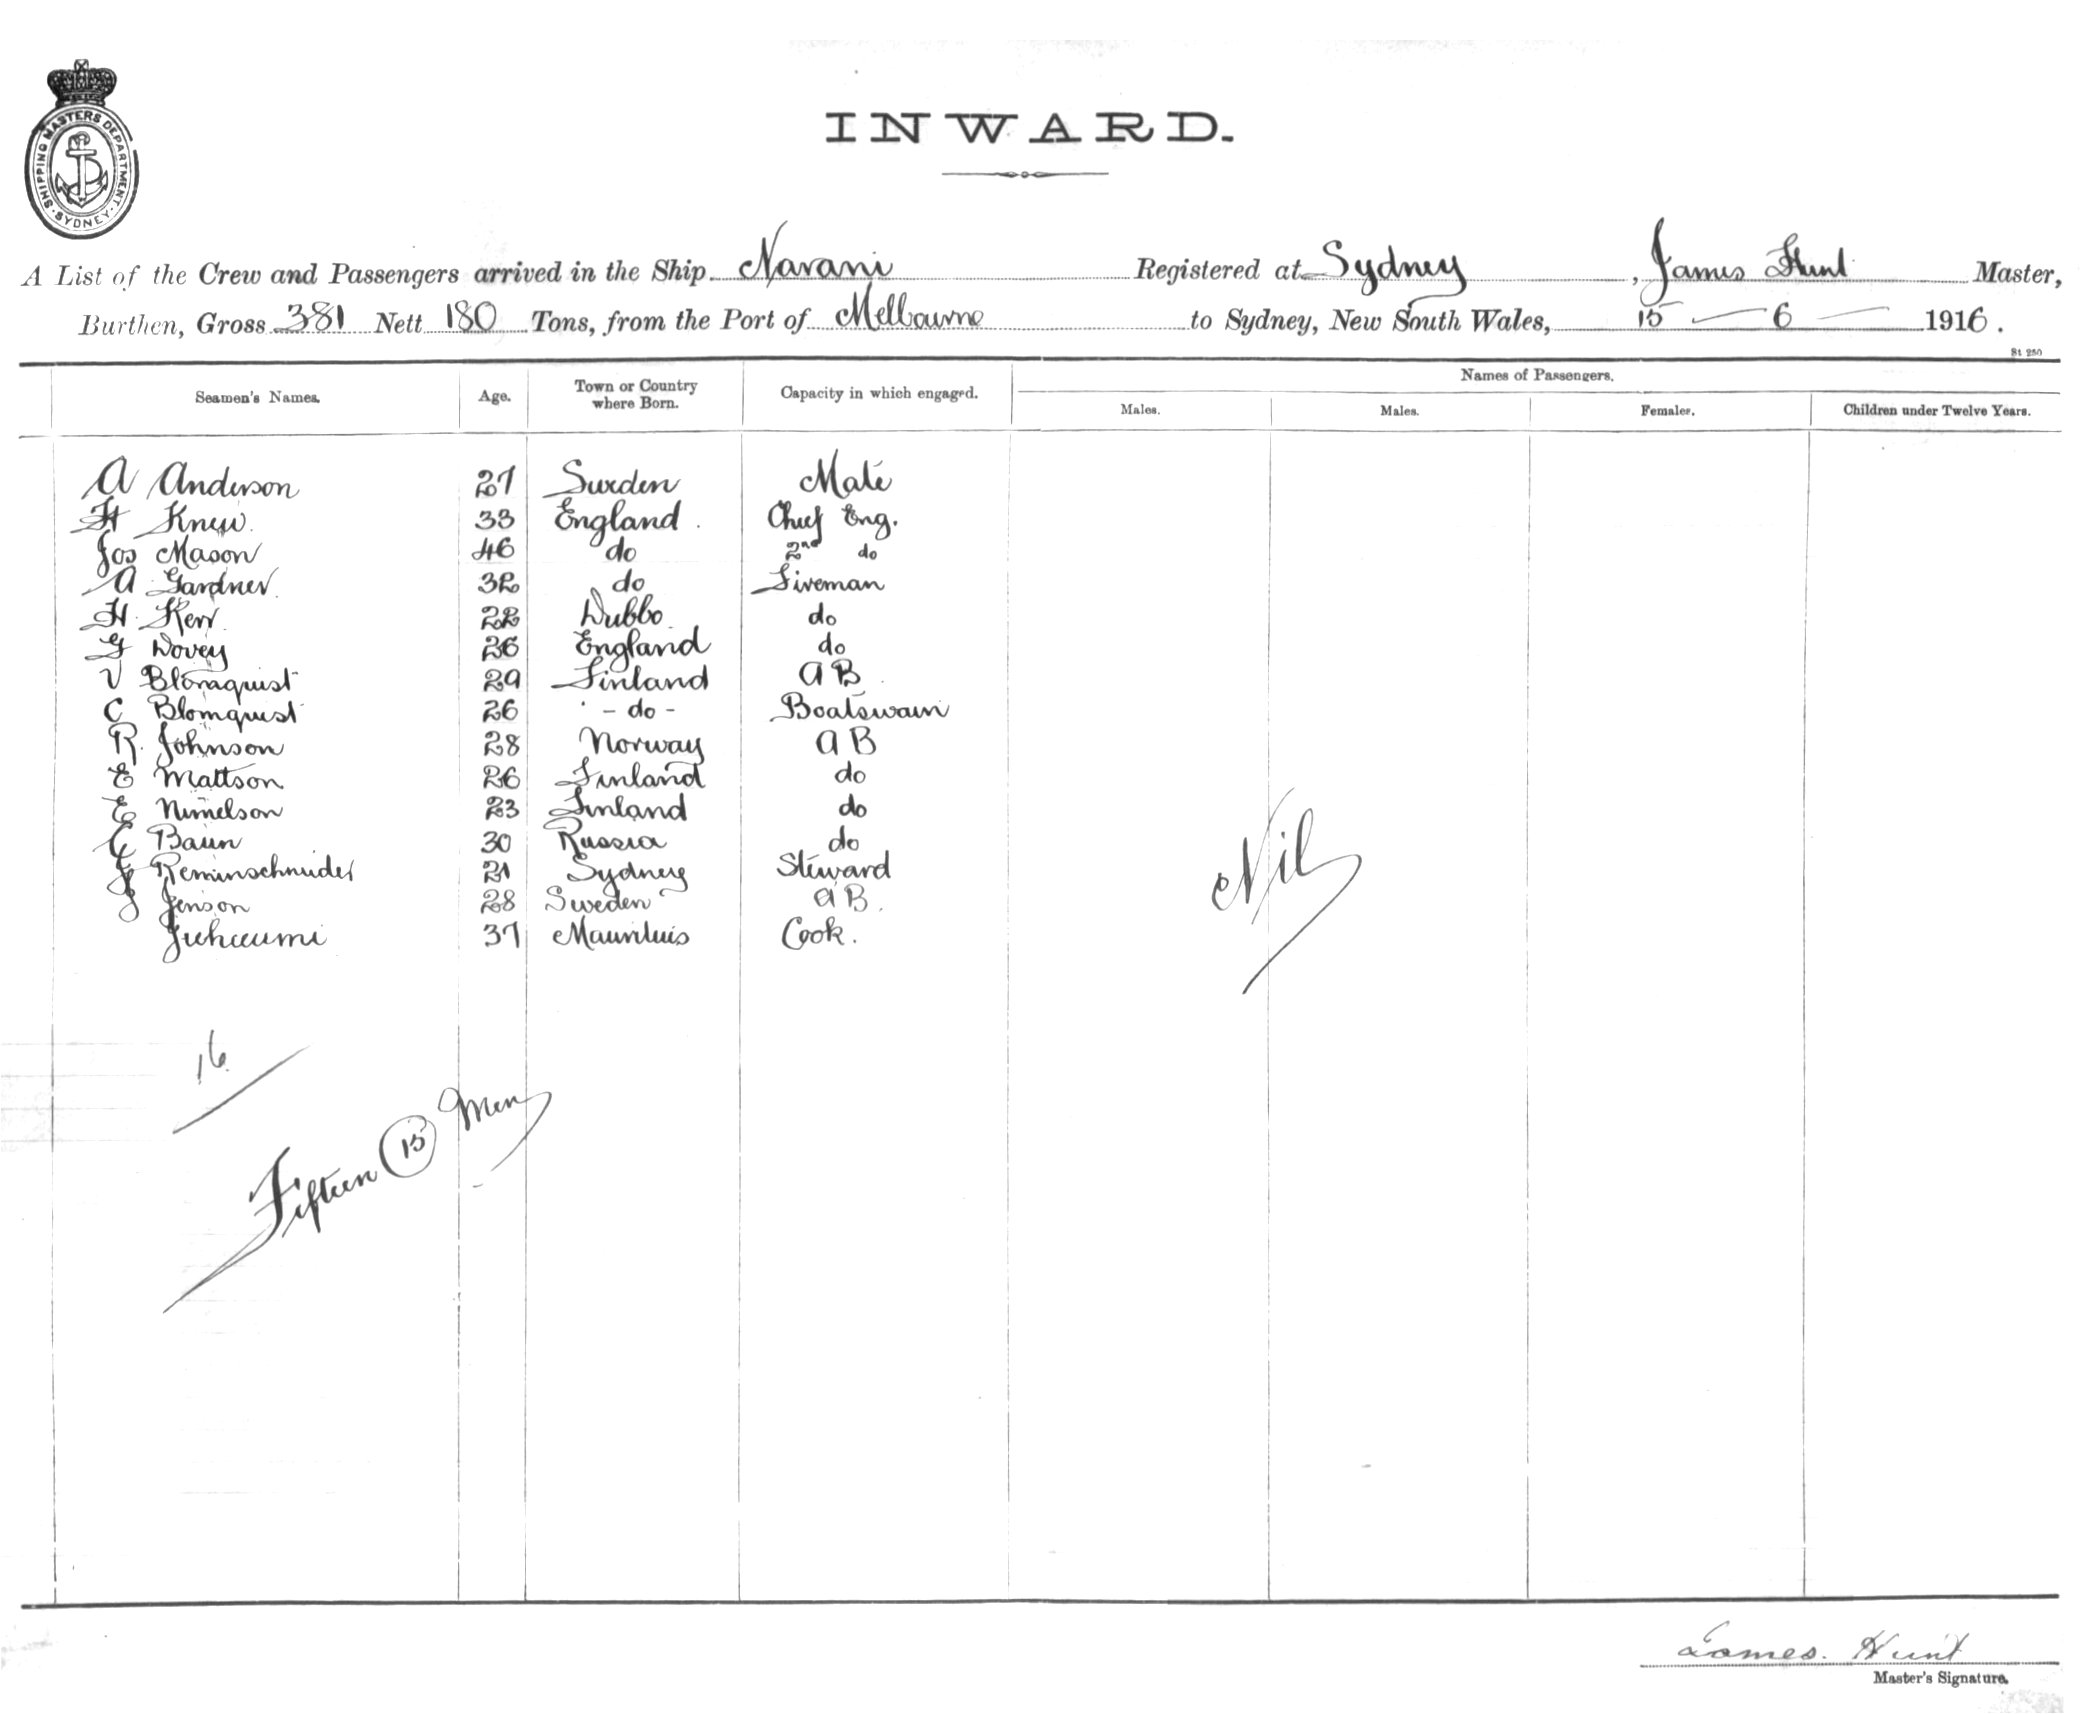 SHIPPING MASTERS DEPARTMENT.
SYDNEY
INWARD.
A List of the Crew and Passengers arrived in the Ship Narani Registered at Sydney, James Hunt Master,
Burthen, Gross 381 Nett 180 Tons, from the Port of Melbourne to Sydney, New South Wales, 15 — 6 — 1916.
St 250
Seamen's Names. Age. Town or Country where Born. Capacity in which engaged. Names of Passengers.
Males. Males. Females. Children under Twelve Years.
A Anderson 27 Sweden Mate
H Knew 33 England Chief Eng.
Jos Mason 46 do 2nd do
A Gardner 32 do Fireman
H Kerr 22 Dubbo do
G Dovey 26 England do
V Blomquist 29 Finland AB
C Blomquist 26 - do - Boatswain
R. Johnson 28 Norway AB
E Mattson 26 Finland do
E Nimelson 23 Finland do
C Baun 30 Russia do
Reminschnider 21 Sydney Steward
J Jenson 28 Sweden AB.
37 Mauritius Cook.
Nil
16
Fifteen 15 Men
James. Hunt
Master's Signature.